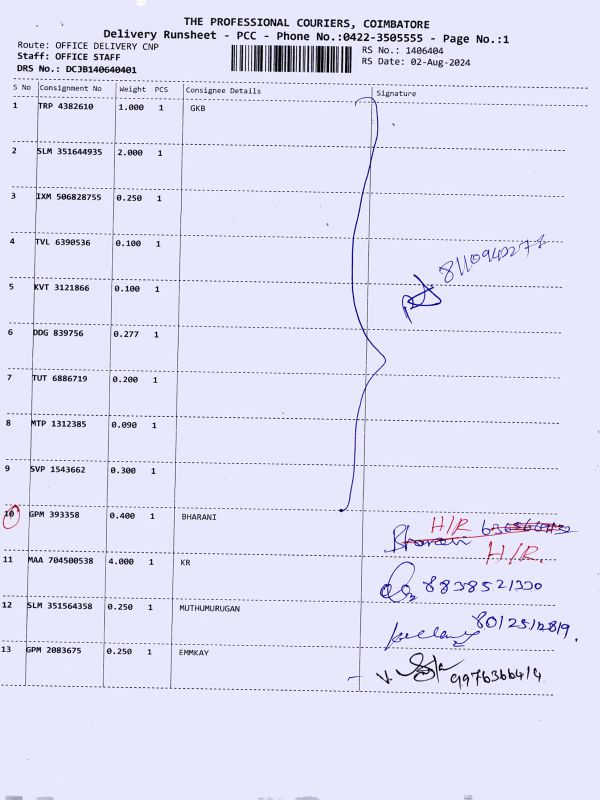 THE PROFESSIONAL COURIERS, COIMBATORE
Delivery Runsheet - PCC - Phone No.:0422-3505555 - Page No.:1
Route: OFFICE DELIVERY CNP
RS No.: 1406404
Staff: OFFICE STAFF
RS Date: 02-Aug-2024
DRS No.: DCJB140640401
S No Consignment No Weight PCS Consignee Details Signature
1 TRP 4382610 1.000 1 GKB
2 SLM 351644935 2.000 1
3 IXM 506828755 0.250 1
4 TVL 6390536 0.100 1
5 KVT 3121866 0.100 1
6 DDG 839756 0.277 1
7 TUT 6886719 0.200 1
8 MTP 1312385 0.090 1
9 SVP 1543662 0.300 1
10 GPM 393358 0.400 1 BHARANI H/R
Bharani H/R.
11 MAA 704500538 4.000 1 KR 8838521330
12 SLM 351564358 0.250 1 MUTHUMURUGAN 8012512819.
13 GPM 2083675 0.250 1 EMMKAY 9976366414